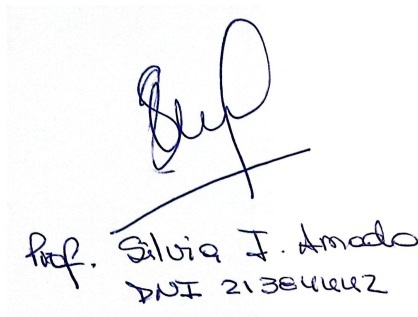 Prof. Silvia J. Amado
DNI 21384442